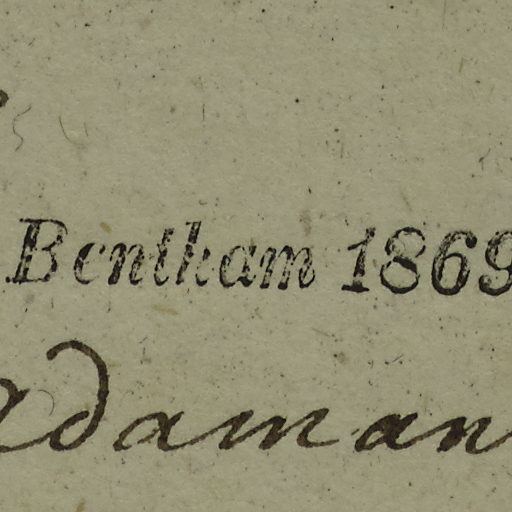 Bentham 1869
adaman